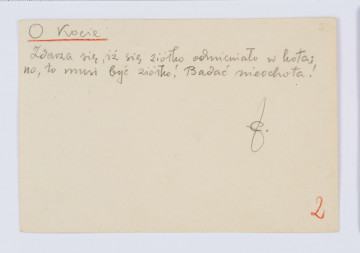 O Kocie
Zdarza się, iż się ziółko odmieniało w kota;
no, to musi być ziółko! Badać nieochota!
2